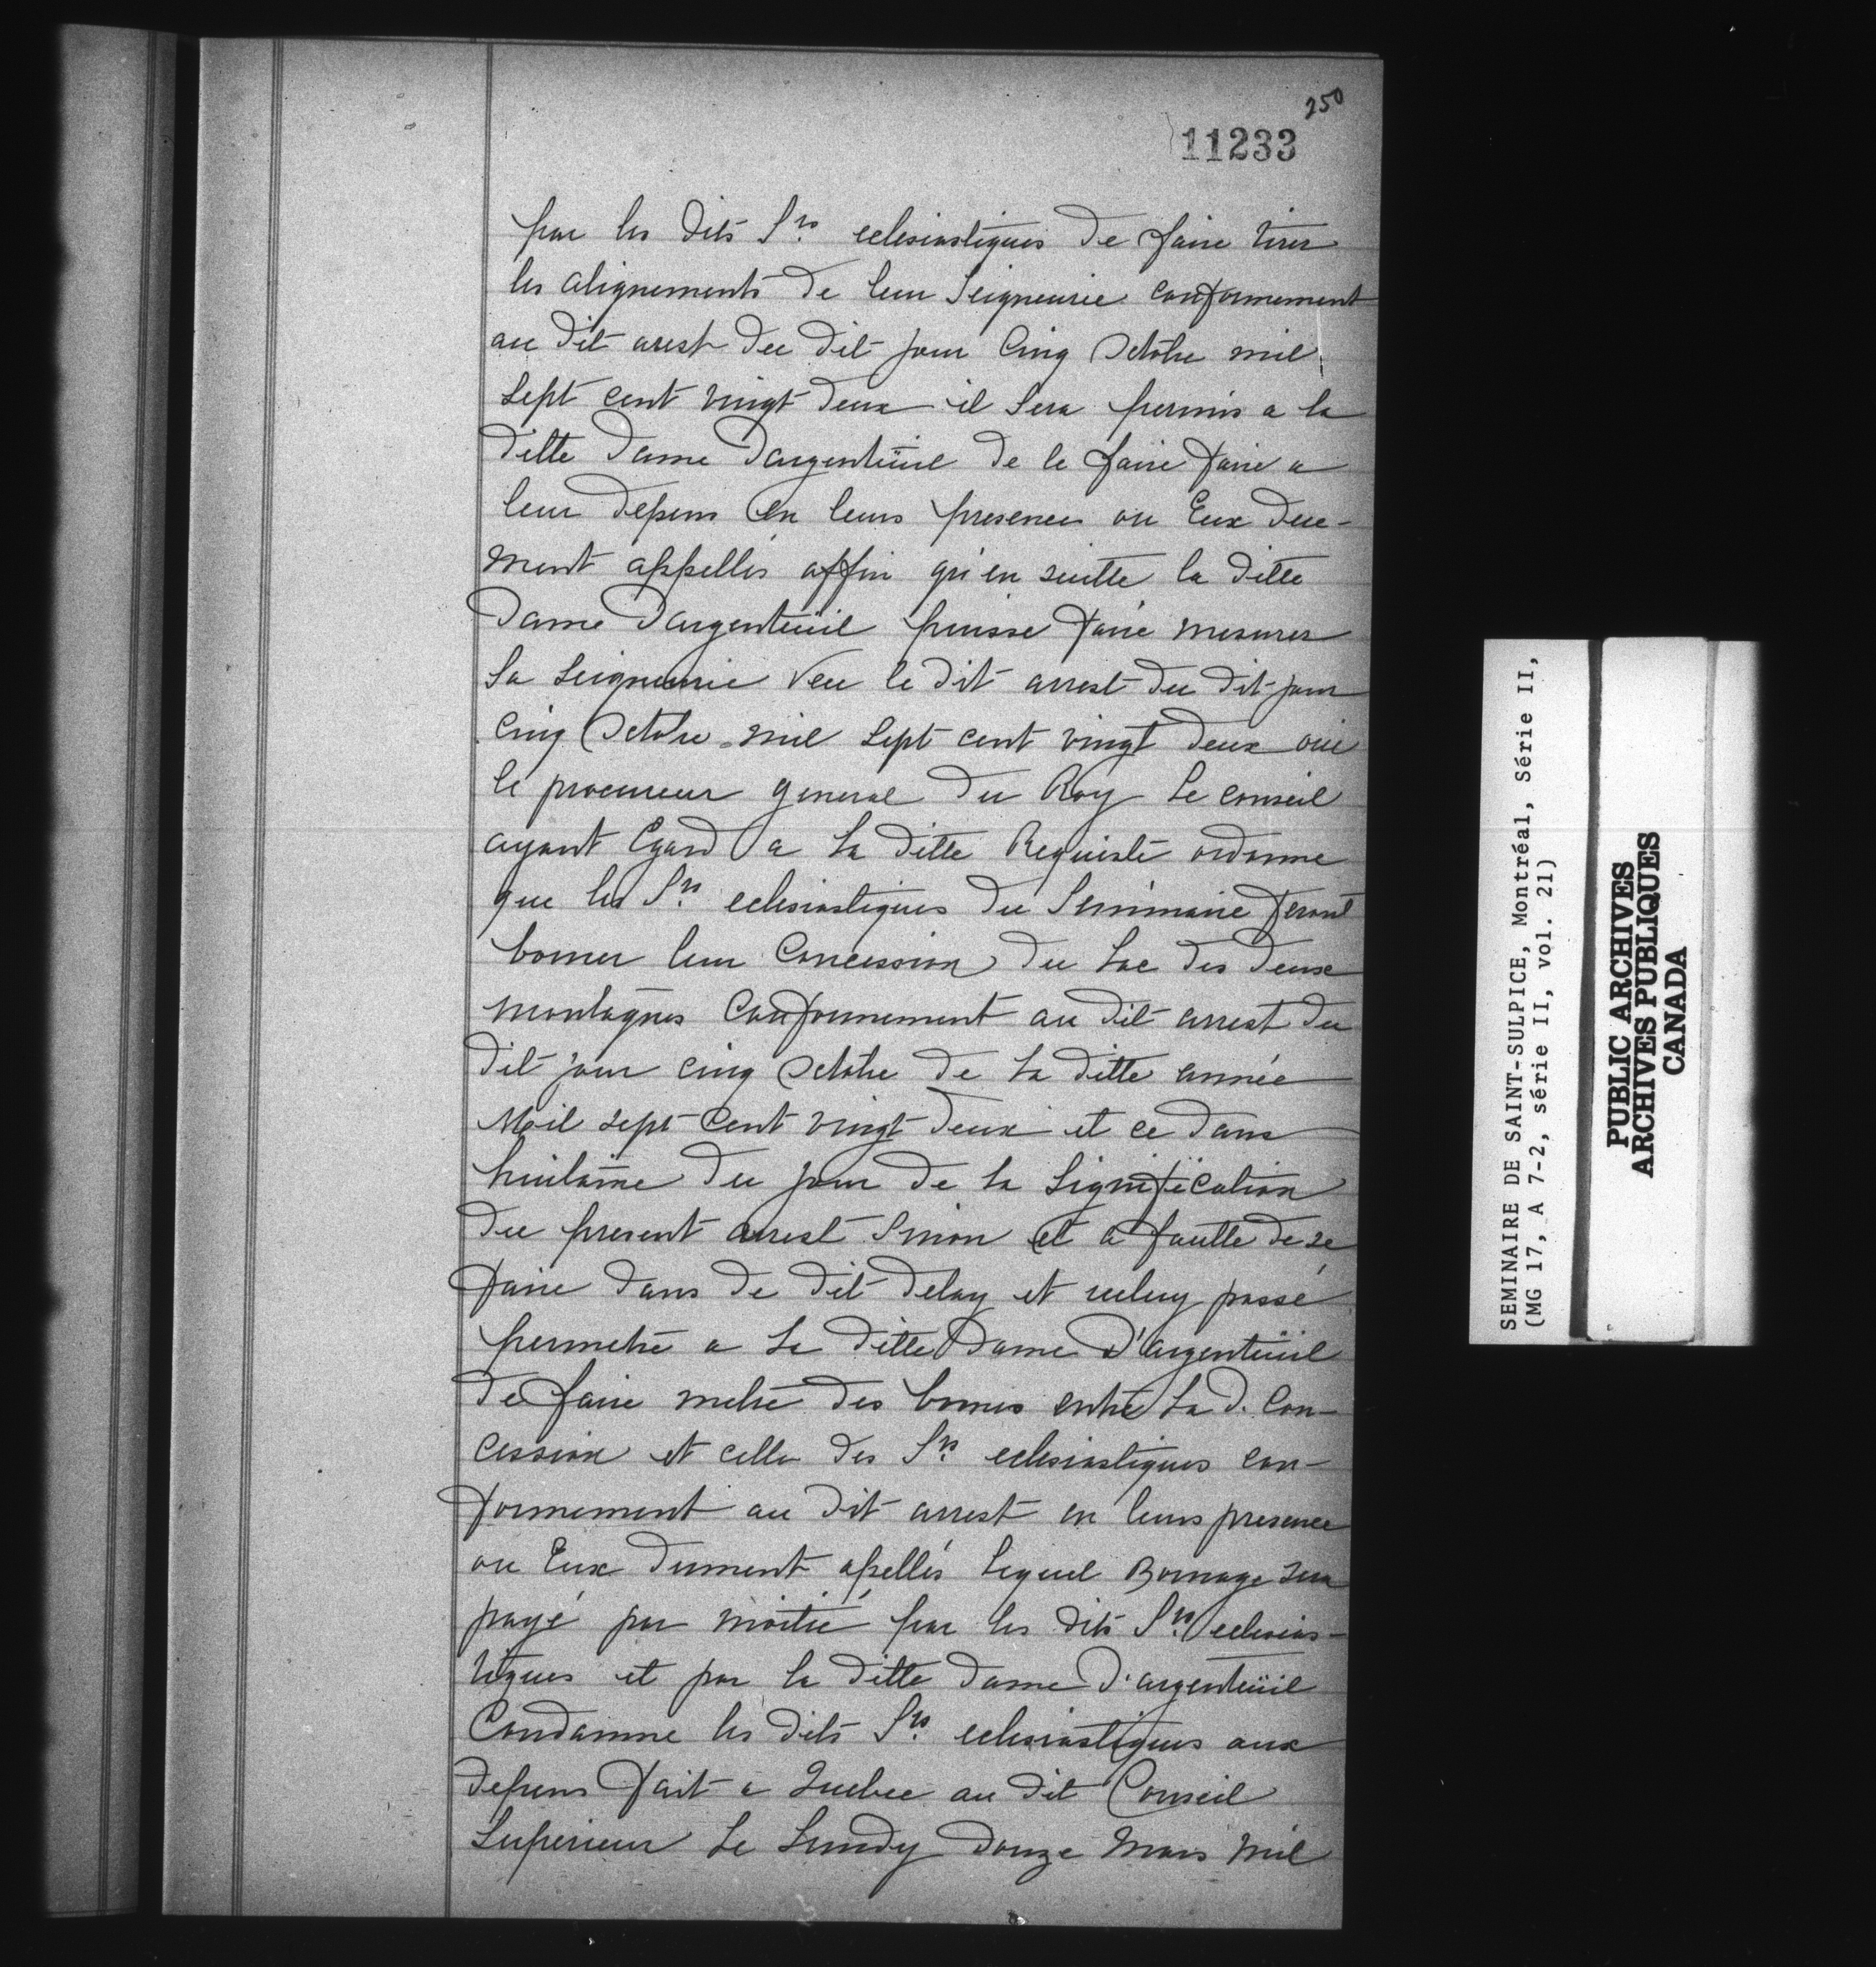 250
11233
par les dits Srs eclesiastiques de faire tirer
les alignements de leur Seigneurie conformement
au dit arest du dit jour Cinq Octobre mil
Sept cent vingt deux il Sera permis a la
ditte dame Dargenteüil de le faire faire a
leur depens en leurs presences ou Eux due-
ment appellés affin qu'en suitte la ditte
Dame Dargenteüil puisse faire mesurer
Sa Seigneurie Veu le dit arrest du dit jour
Cinq Octobre mil Sept cent vingt deux oui
le procureur general du Roy Le conseil
ayant Egard a La ditte Requiste ordonne
que les Srs eclesiastiques du Seminaire feront
borner leur Concession du Lac des deux
montagnes Conformement au dit arrest du
dit jour cinq Octobre de La ditte année
Mil sept Cent vingt deux et ce dans
huitaine du jour de la Signification
du present arrest Sinon et a fautte de ce
faire dans de dit delay et iceluy passé
permetre a La ditte Dame D'argenteüil
de faire metre des bornes entre La d. Con-
cession et celle des Srs eclesiastiques con-
formement au dit arrest en leurs presence
ou Eux dument apellés Lequel Bornage sera
payé par moitié par les dits Srs eclesias-
tiques et par la ditte dame D'argenteüil
Condamne les dits Srs eclesiastiques aux
depens fait a Quebec au dit Conseil
Superieur Le Lundy douze Mars Mil
SEMINAIRE DE SAINT-SULPICE, Montréal, Série II,
(MG 17, A 7-2, série II, vol. 21)
PUBLIC ARCHIVES
ARCHIVES PUBLIQUES
CANADA